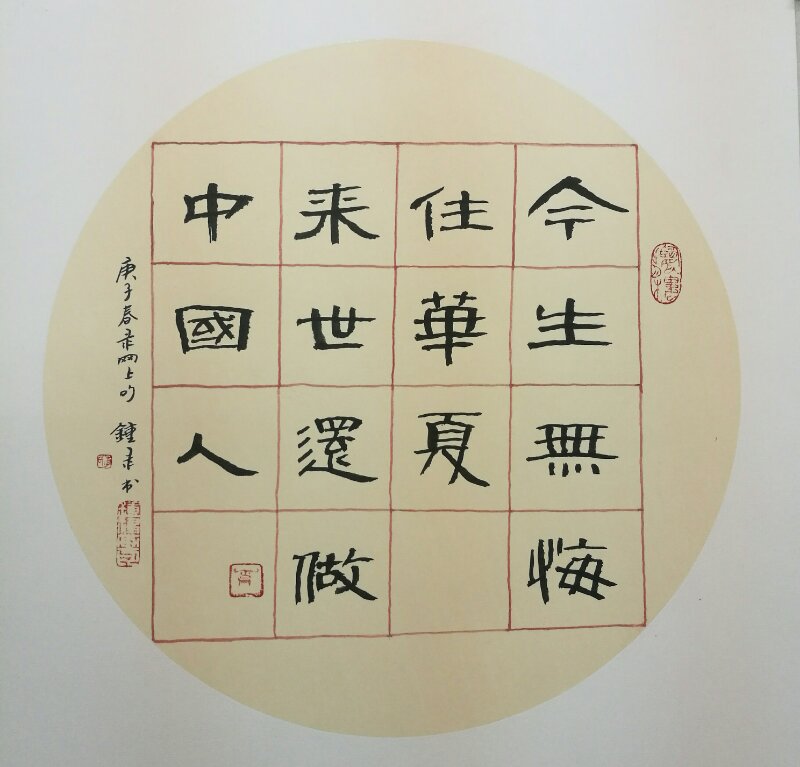 今生無悔
住華夏
来世還做
中國人
庚子春网上句